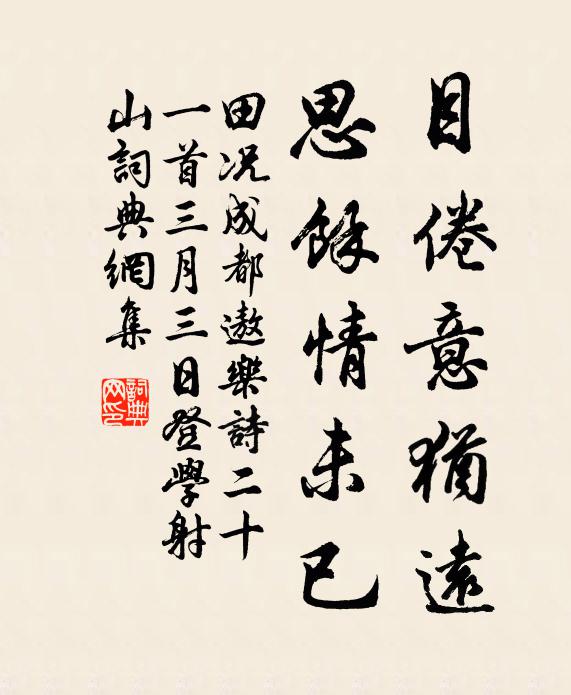 目倦意猶遠
思餘情未已
田况成都遨樂詩二十
一首三月三日登學射
山詞典網集
詞典
网印